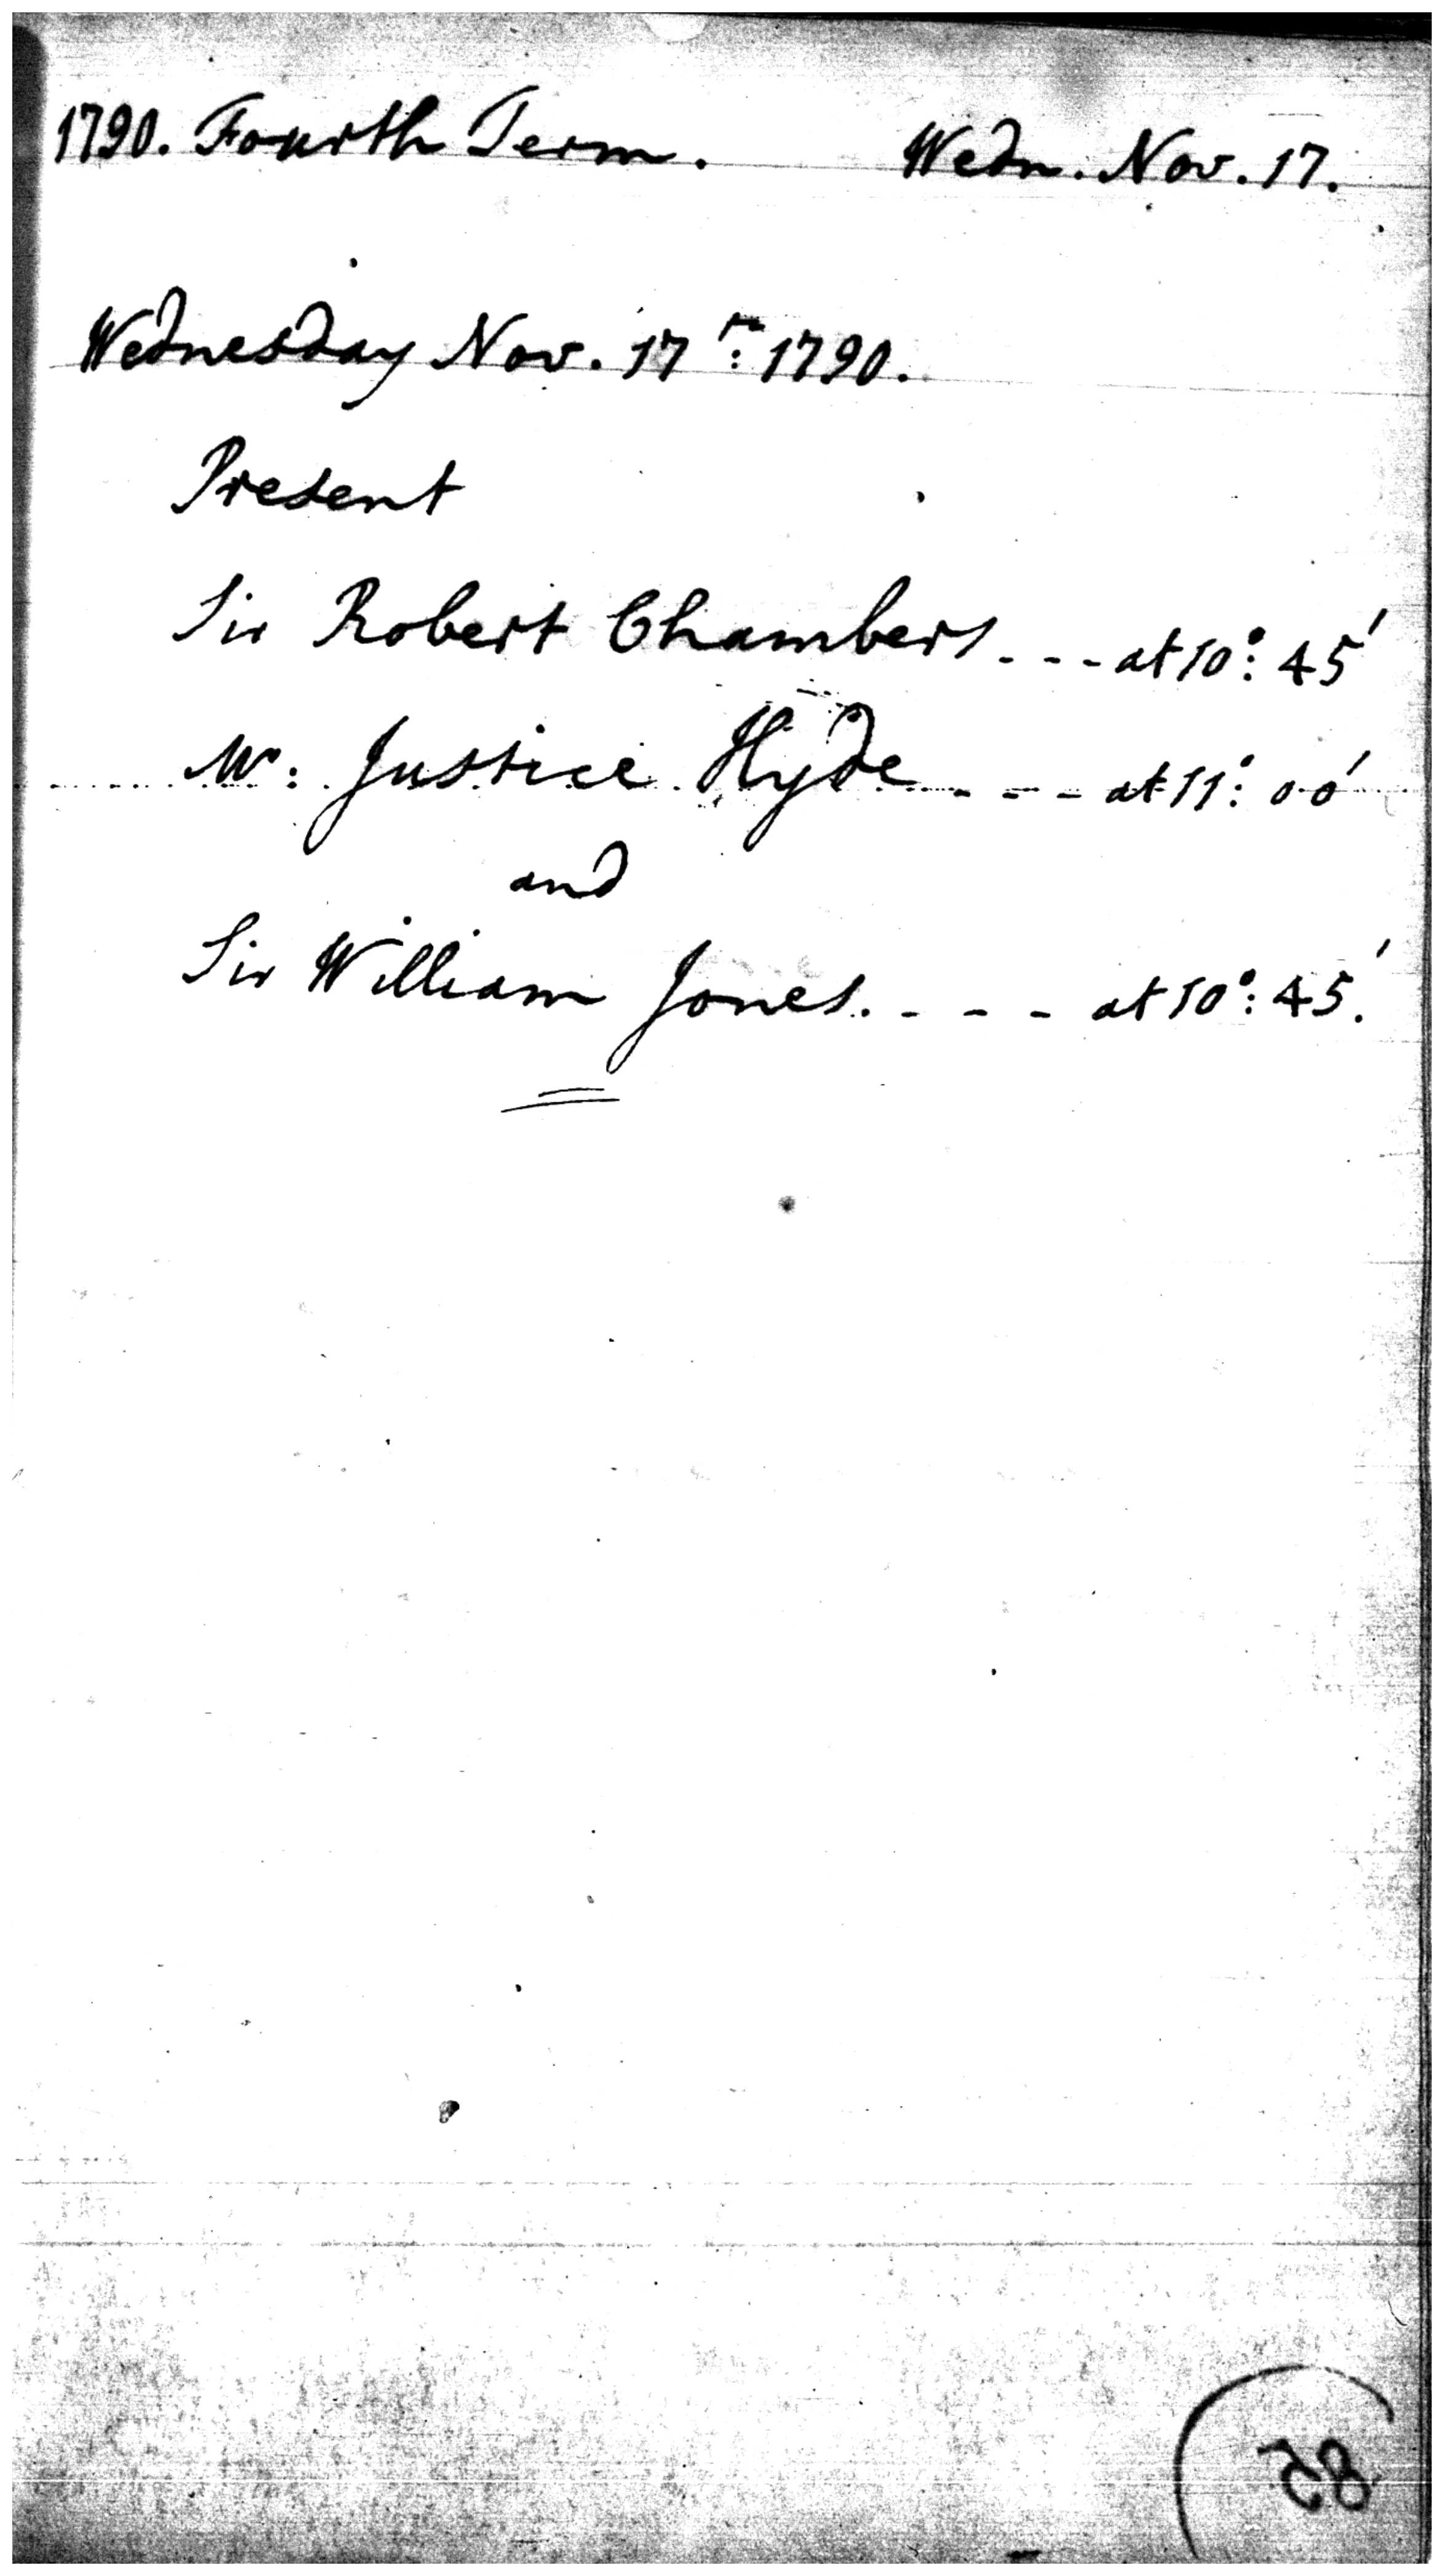 1790. Fourth Term. Wedn. Nov. 17.
Wednesday Nov. 17th: 1790.
Present
Sir Robert Chambers - - - at 10°: 45'
Mr: Justice Hyde - - - at 11°: 00'
and
Sir William Jones. - - - at 10°: 45'.